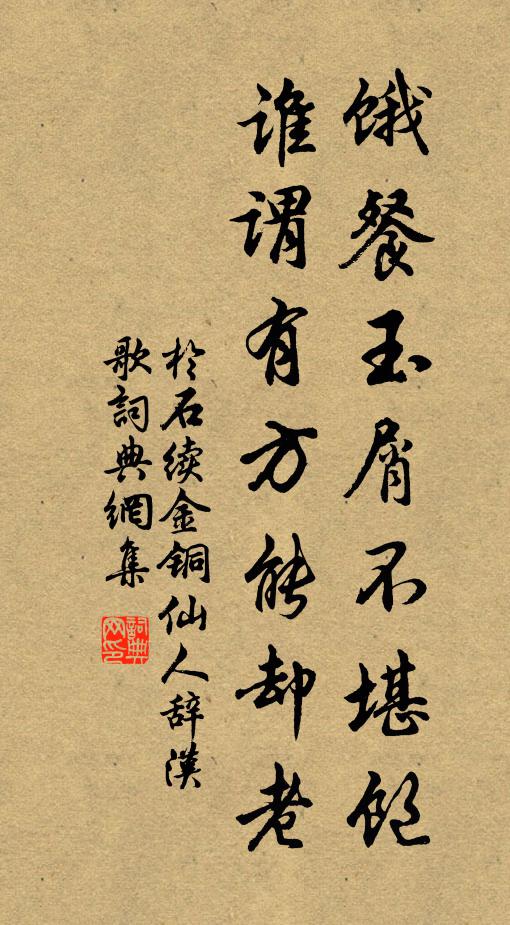 饿餐玉屑不堪饱
谁谓有方能却老
於石续金铜仙人辞漢
歌詞典網集
詞典
网印